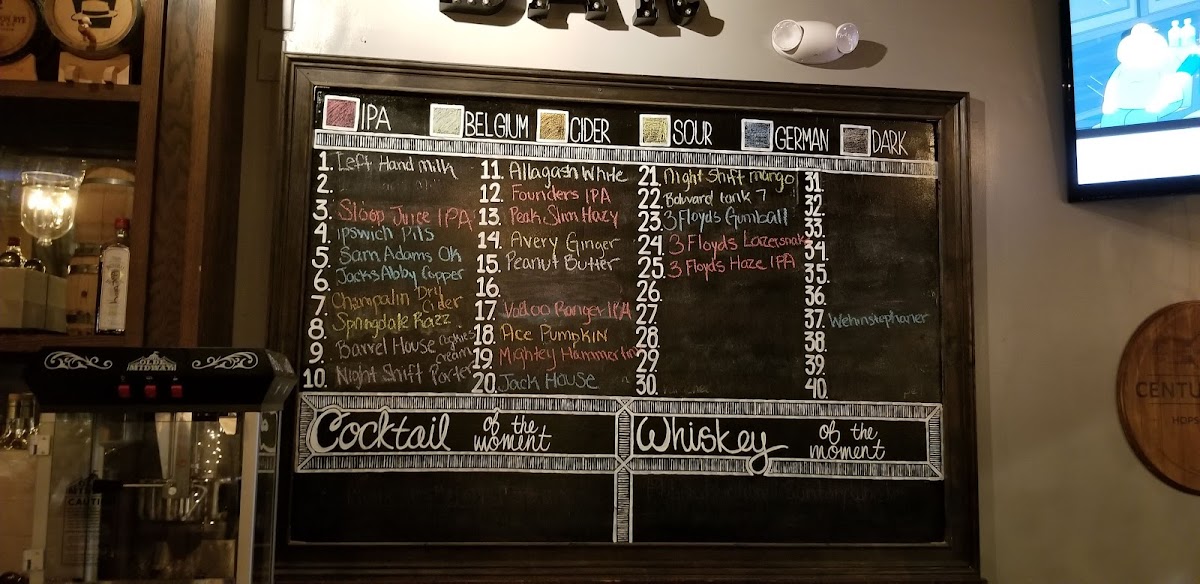 BAR
IPA BELGIUM CIDER SOUR GERMAN DARK
1. Left Hand milk
2.
3. Sloop Juice IPA
4. Ipswich Pils
5. Sam Adams Ok
6. Jacks Abby Copper
7. Champalin Dry Cider
8. Springdale Razz
9. Barrel House cookies cream
10. Night Shift Porter
11. Allagash White
12. Founders IPA
13. Peak Slim Hazy
14. Avery Ginger
15. Peanut Butter
16.
17. Vodoo Ranger IPA
18. Ace Pumpkin
19. Mightey Hammertin
20. Jack House
21. Night Shift mango
22. Boluvard tank 7
23. 3 Floyds Gumball
24. 3 Floyds Lazersnake
25. 3 Floyds Haze IPA
26.
27.
28.
29.
30.
31.
32.
33.
34.
35.
36.
37. Wehinstephaner
38.
39.
40.
Cocktail of the moment
Whiskey of the moment
OLDE MIDWAY
HOPS